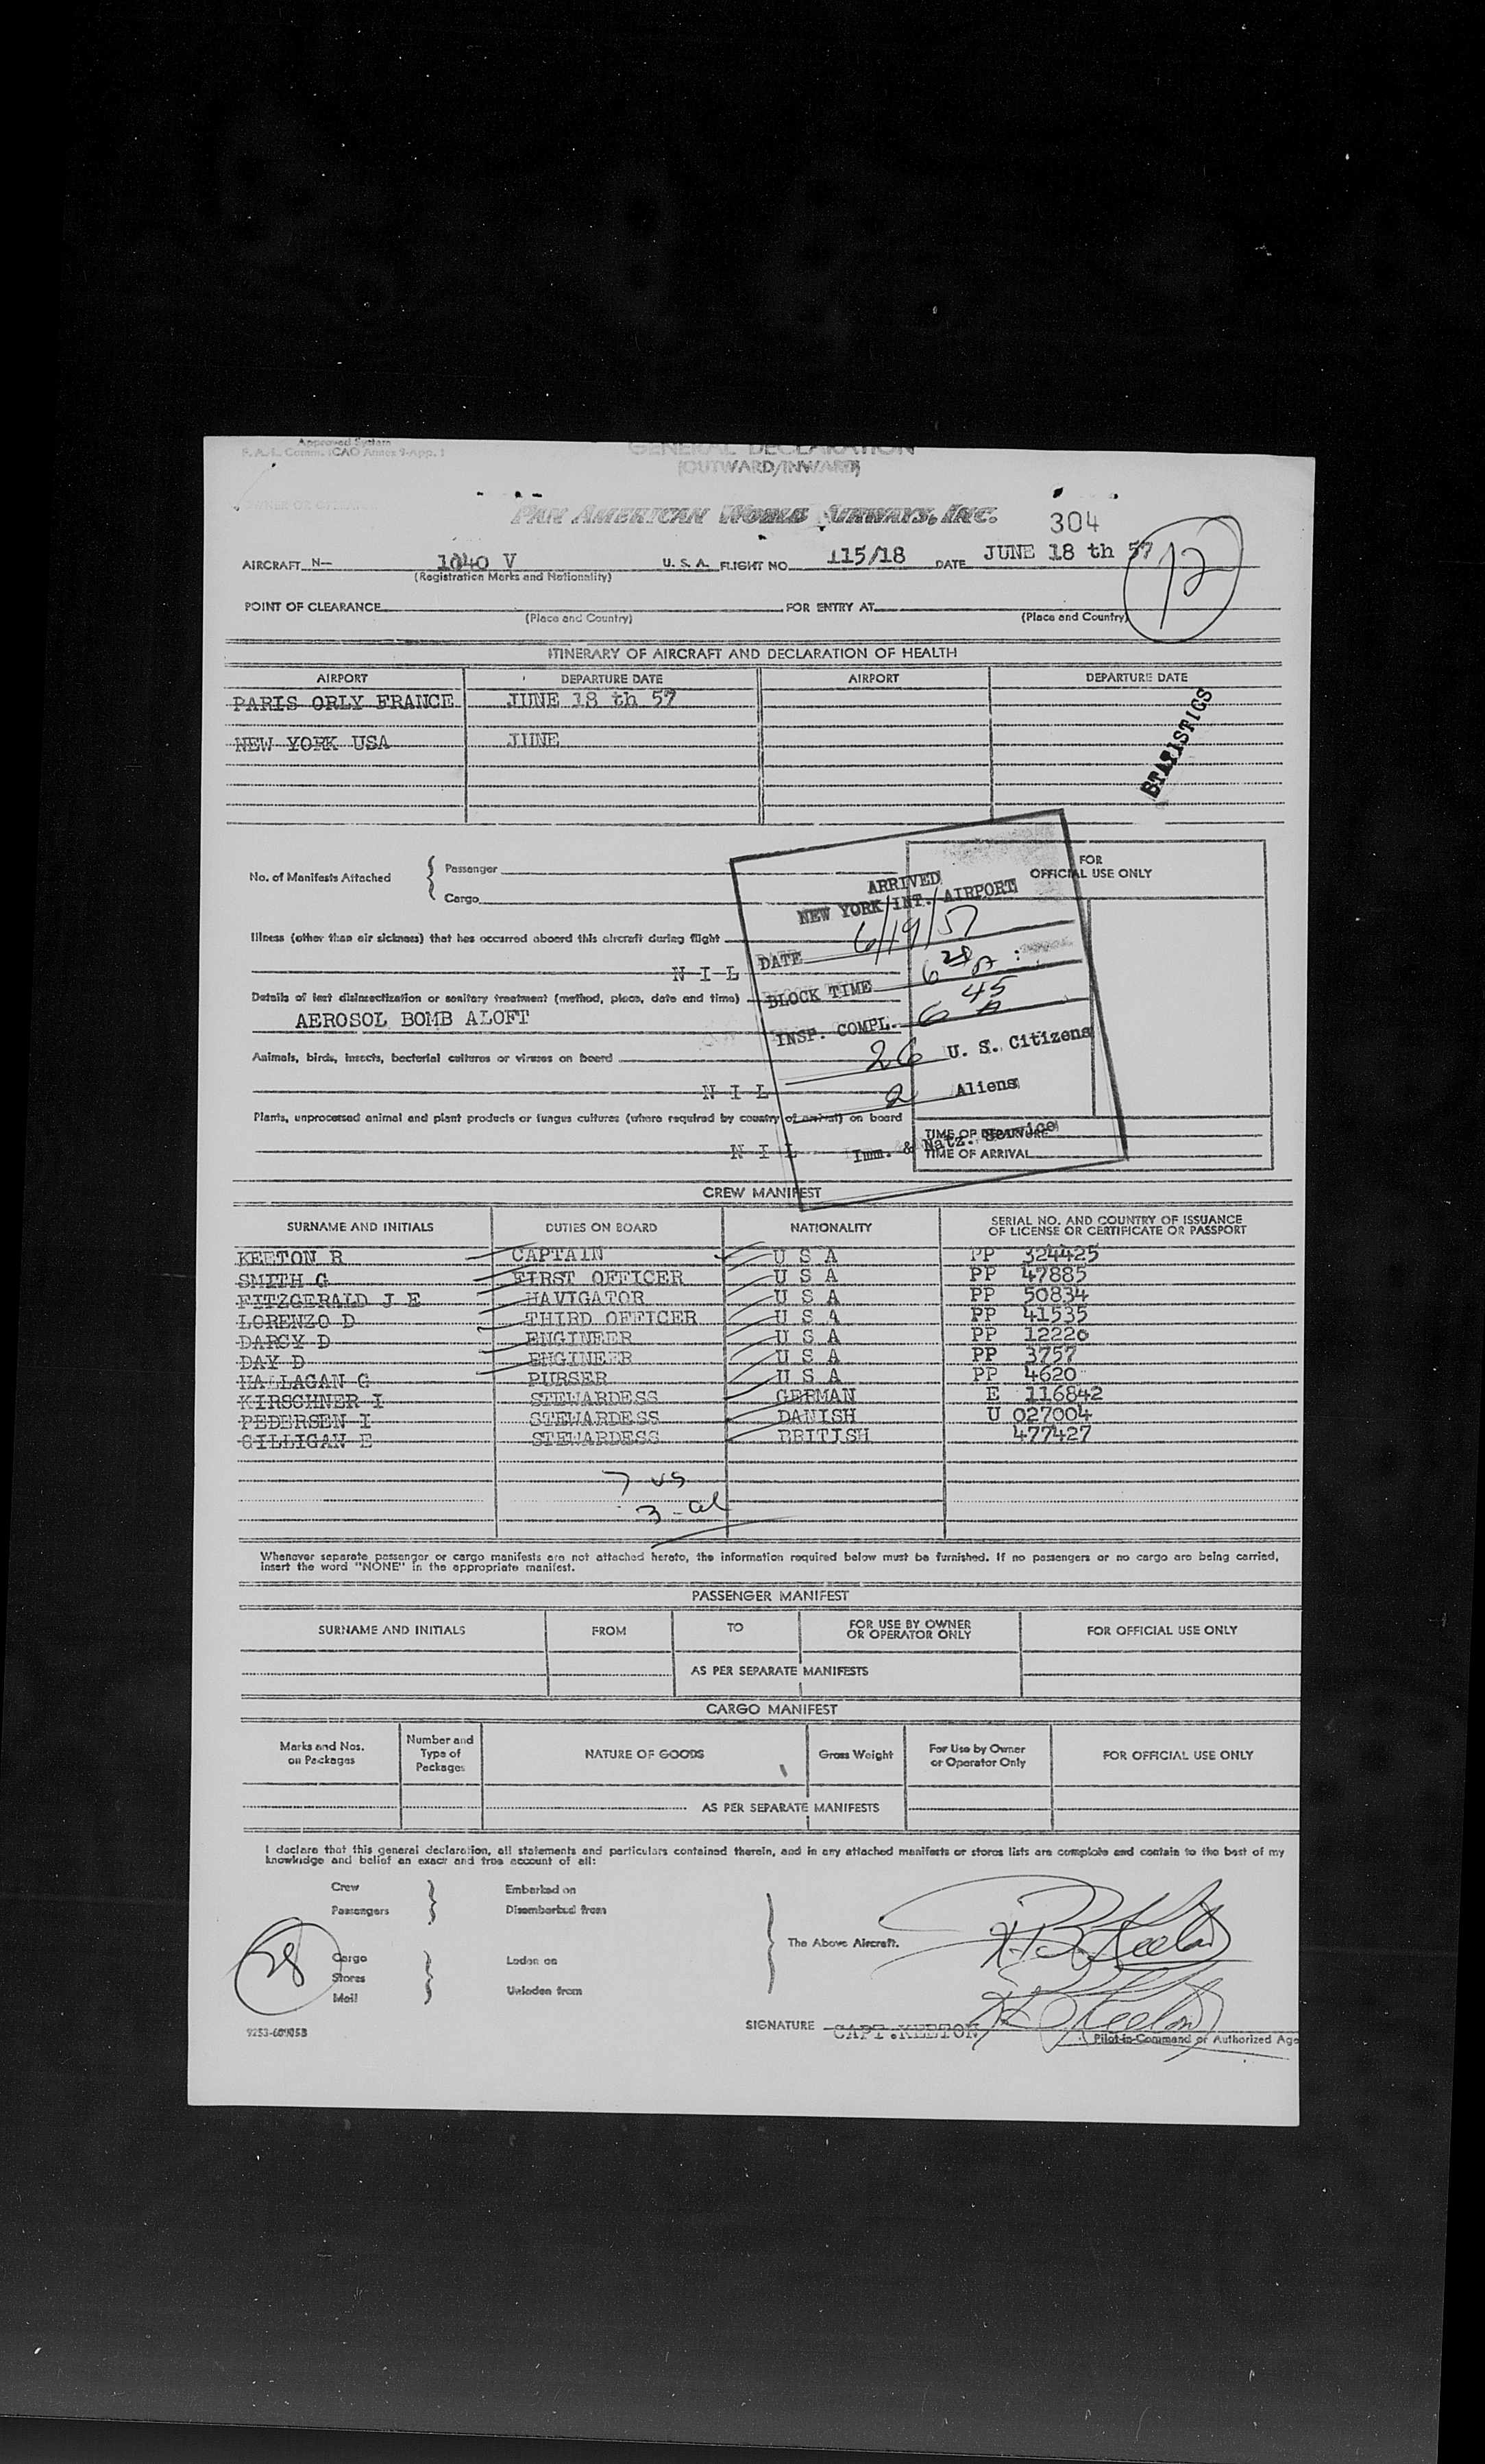 Approved System
F. A. L. Comm. ICAO Annex 9-App. 1
GENERAL DECLARATION
(OUTWARD/INWARD)
OWNER OR OPERATOR
PAN AMERICAN WORLD AIRWAYS, INC.
304
AIRCRAFT N— 1040 V U. S. A. FLIGHT NO. 115/18 DATE JUNE 18 th 57
12
(Registration Marks and Nationality)
POINT OF CLEARANCE FOR ENTRY AT
(Place and Country) (Place and Country)
ITINERARY OF AIRCRAFT AND DECLARATION OF HEALTH
AIRPORT DEPARTURE DATE AIRPORT DEPARTURE DATE
PARIS ORLY FRANCE JUNE 18 th 57
NEW YORK USA JUNE
STATISTICS
No. of Manifests Attached { Passenger
Cargo
FOR
OFFICIAL USE ONLY
ARRIVED
NEW YORK INT. AIRPORT
DATE 6/19/57
BLOCK TIME 6 28 A
INSP. COMPL. 6 45 A
26 U. S. Citizens
2 Aliens
Imm. & Natz. Service
Illness (other than air sickness) that has occurred aboard this aircraft during flight
N I L
Details of last disinsectization or sanitary treatment (method, place, date and time)
AEROSOL BOMB ALOFT
Animals, birds, insects, bacterial cultures or viruses on board
N I L
Plants, unprocessed animal and plant products or fungus cultures (where required by country of arrival) on board
N I L
TIME OF DEPARTURE
TIME OF ARRIVAL
CREW MANIFEST
SURNAME AND INITIALS DUTIES ON BOARD NATIONALITY SERIAL NO. AND COUNTRY OF ISSUANCE
OF LICENSE OR CERTIFICATE OR PASSPORT
KEETON R CAPTAIN U S A PP 324425
SMITH G FIRST OFFICER U S A PP 47885
FITZGERALD J E NAVIGATOR U S A PP 50834
LORENZO D THIRD OFFICER U S A PP 41535
DARCY D ENGINEER U S A PP 12220
DAY D ENGINEER U S A PP 3757
HALLAGAN G PURSER U S A PP 4620
KIRSCHNER I STEWARDESS GERMAN E 116842
PEDERSEN I STEWARDESS DANISH U 027004
GILLIGAN E STEWARDESS BRITISH 477427
7 US
3 - al
Whenever separate passenger or cargo manifests are not attached hereto, the information required below must be furnished. If no passengers or no cargo are being carried,
insert the word "NONE" in the appropriate manifest.
PASSENGER MANIFEST
SURNAME AND INITIALS FROM TO FOR USE BY OWNER
OR OPERATOR ONLY FOR OFFICIAL USE ONLY
AS PER SEPARATE MANIFESTS
CARGO MANIFEST
Marks and Nos.
on Packages Number and
Type of
Packages NATURE OF GOODS Gross Weight For Use by Owner
or Operator Only FOR OFFICIAL USE ONLY
AS PER SEPARATE MANIFESTS
I declare that this general declaration, all statements and particulars contained therein, and in any attached manifests or stores lists are complete and contain to the best of my
knowledge and belief an exact and true account of all:
Crew Embarked on
Passengers Disembarked from
The Above Aircraft.
28
Cargo Laden on
Stores
Mail Unladen from
SIGNATURE CAPT.KEETON
(Pilot-in-Command or Authorized Age